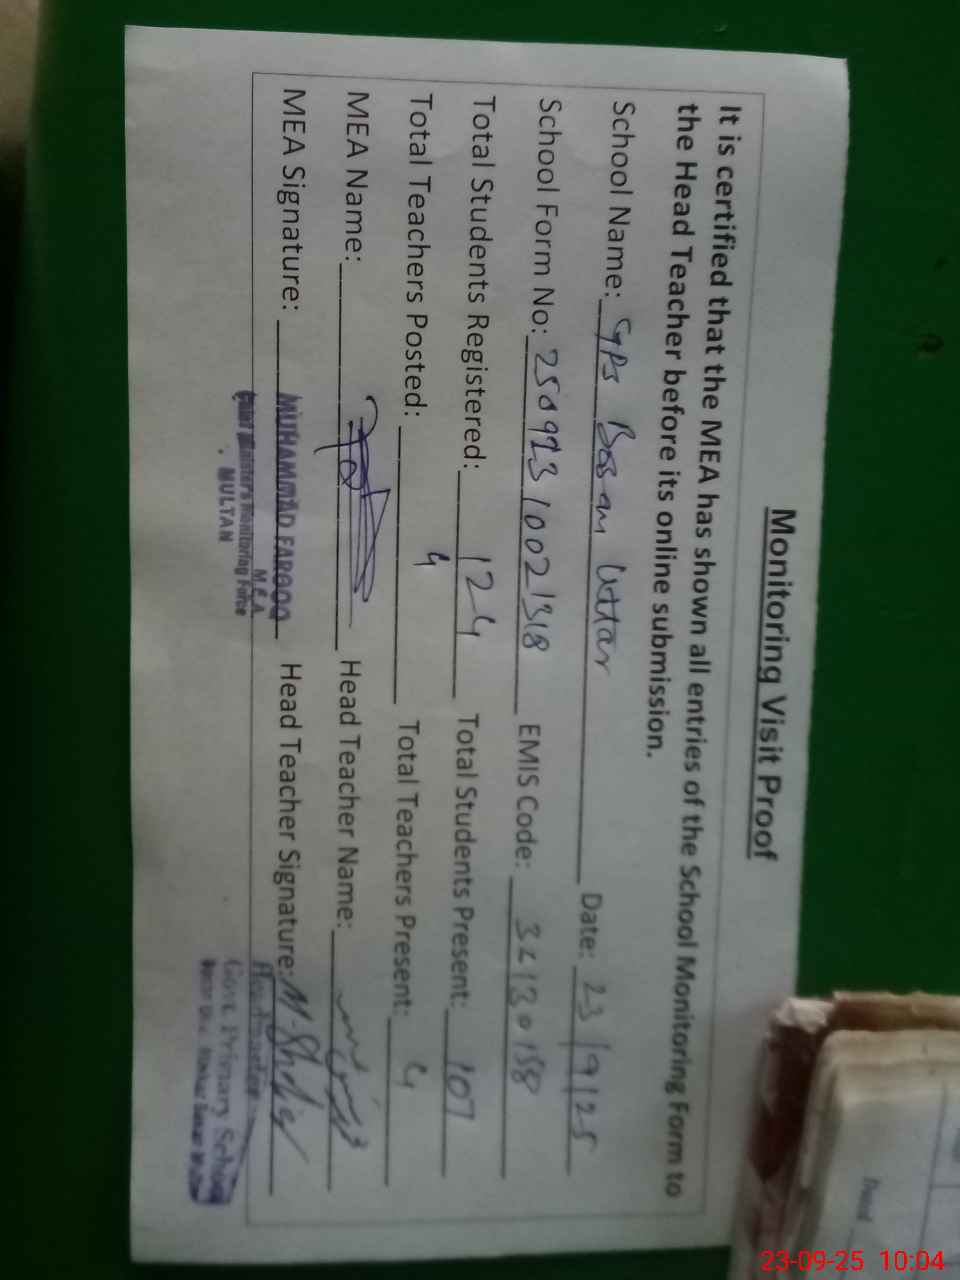 Monitoring Visit Proof
It is certified that the MEA has shown all entries of the School Monitoring Form to
the Head Teacher before its online submission.
School Name: GPS Bosan Uttar Date: 23/9/25
School Form No: 25092310021318 EMIS Code: 36130158
Total Students Registered: 124 Total Students Present: 107
Total Teachers Posted: 4 Total Teachers Present: 4
MEA Name: Head Teacher Name:
MEA Signature: MUHAMMAD FAROOQ Head Teacher Signature: M.
M.E.A
Chief Minister's Monitoring Force
MULTAN
Headmaster
Govt. Primary School
23-09-25 10:04